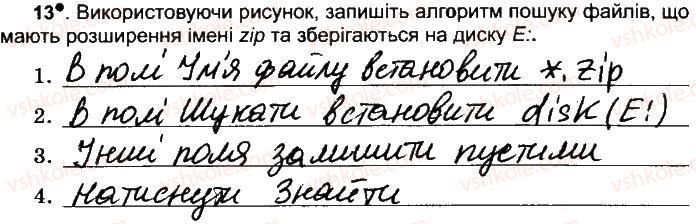 13•. Використовуючи рисунок, запишіть алгоритм пошуку файлів, що
мають розширення імені zip та зберігаються на диску E:.
1. В полі Ім'я файлу встановити *.zip
2. В полі Шукати встановити disk (E:)
3. Інші поля залишити пустими
4. Натиснути Знайти